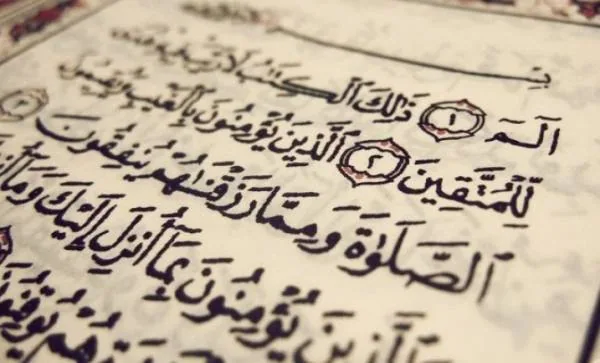 الٓمٓ ١ ذَٰلِكَ ٱلْكِتَٰبُ لَا رَيْبَ فِيهِ هُدًى
لِّلْمُتَّقِينَ ٢ ٱلَّذِينَ يُؤْمِنُونَ بِٱلْغَيْبِ وَيُقِيمُونَ
ٱلصَّلَوٰةَ وَمِمَّا رَزَقْنَٰهُمْ يُنفِقُونَ ٣
وَٱلَّذِينَ يُؤْمِنُونَ بِمَآ أُنزِلَ إِلَيْكَ وَمَآ
هُمْ